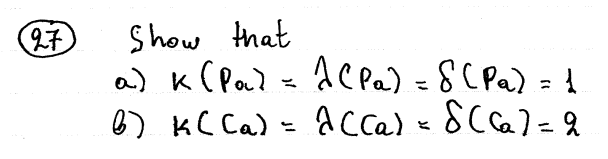 27 Show that
a) κ(Pa) = λ(Pa) = δ(Pa) = 1
b) κ(Ca) = λ(Ca) = δ(Ca) = 2